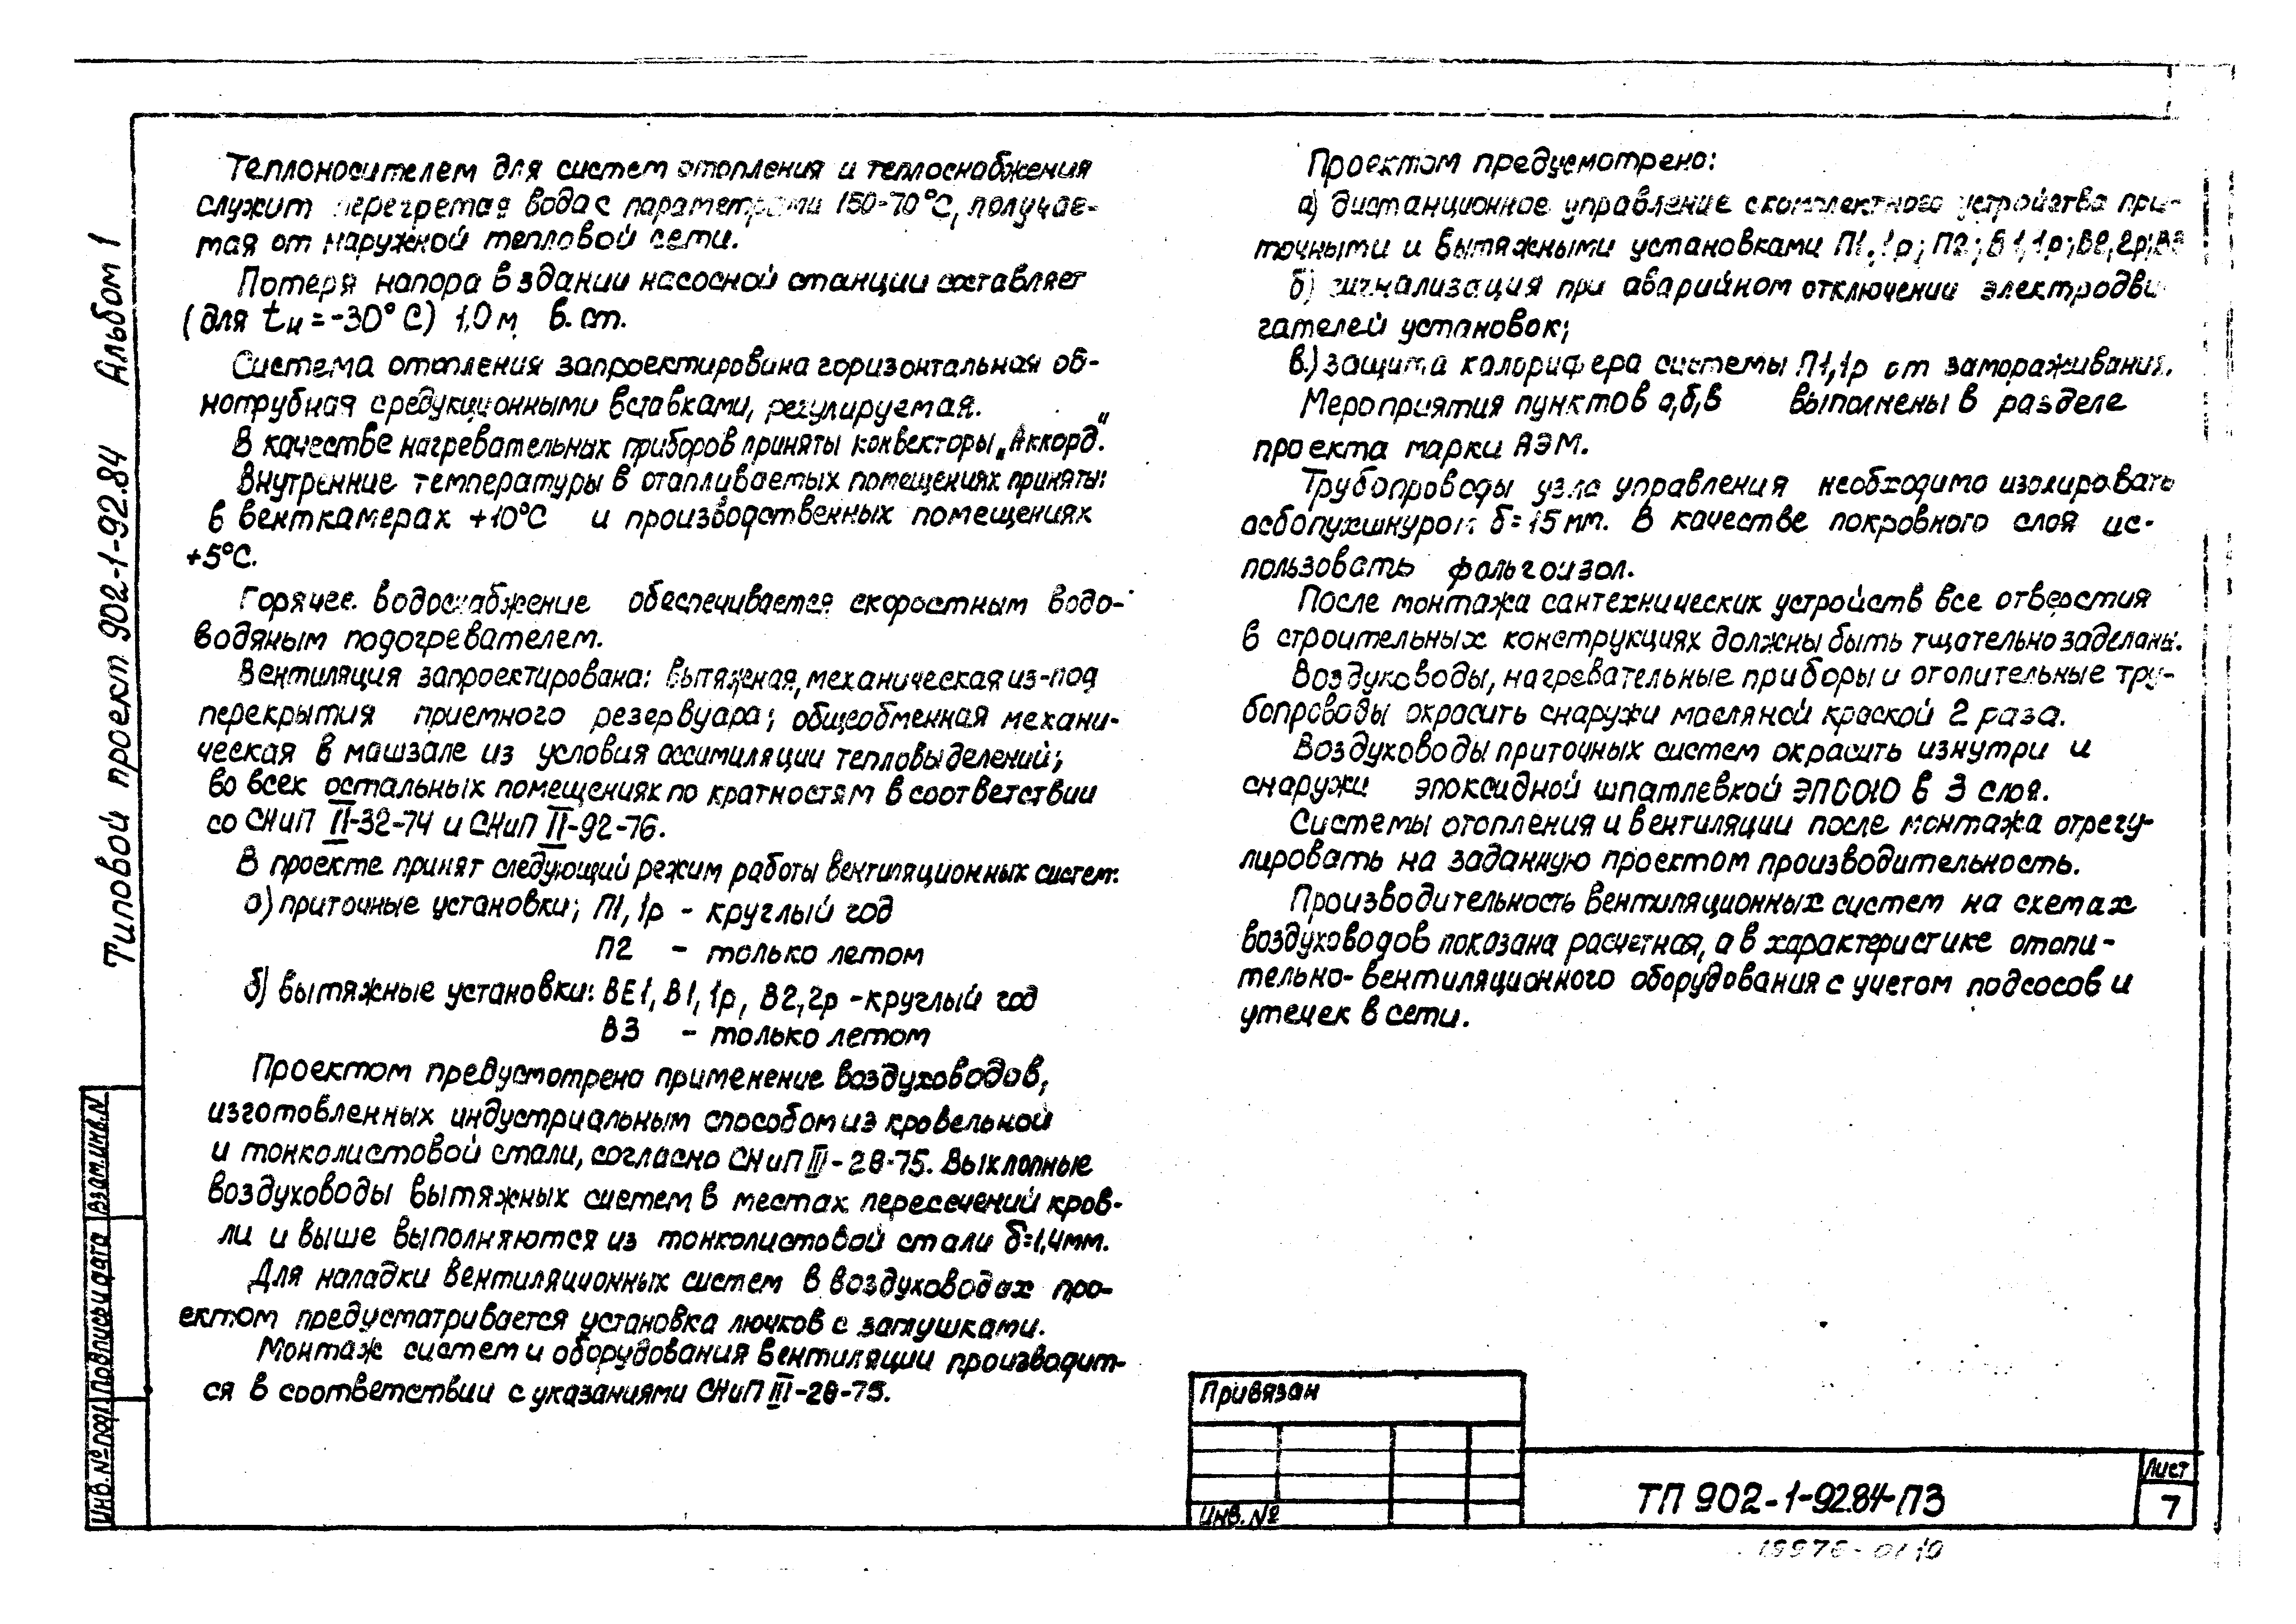 Теплоносителем для систем отопления и теплоснабжения
служит перегретая вода с параметрами 150-70°С, получае-
мая от наружной тепловой сети.
Потеря напора в здании насосной станции составляет
(для tн=-30°С) 1,0м в. ст.
Система отопления запроектирована горизонтальная од-
нотрубная с редукционными вставками, регулируемая.
В качестве нагревательных приборов приняты конвекторы „Аккорд".
Внутренние температуры в отапливаемых помещениях приняты:
в венткамерах +10°С и производственных помещениях
+5°С.
Горячее водоснабжение обеспечивается скоростным водо-
водяным подогревателем.
Вентиляция запроектирована: вытяжная, механическая из-под
перекрытия приемного резервуара; общеобменная механи-
ческая в машзале из условия ассимиляции тепловыделений;
во всех остальных помещениях по кратностям в соответствии
со СНиП II-32-74 и СНиП II-92-76.
В проекте принят следующий режим работы вентиляционных систем:
а) приточные установки; П1, 1р - круглый год
П2 - только летом
б) вытяжные установки: ВЕ1, В1, 1р, В2, 2р - круглый год
В3 - только летом
Проектом предусмотрено применение воздуховодов,
изготовленных индустриальным способом из кровельной
и тонколистовой стали, согласно СНиП III-28-75. Выхлопные
воздуховоды вытяжных систем в местах пересечений кров-
ли и выше выполняются из тонколистовой стали δ=1,4мм.
Для наладки вентиляционных систем в воздуховодах про-
ектом предусматривается установка лючков с заглушками.
Монтаж систем и оборудования вентиляции производит-
ся в соответствии с указаниями СНиП III-28-75.
Проектом предусмотрено:
а) дистанционное управление с комплектного устройства при-
точными и вытяжными установками П1,1р; П2; В1,1р; В2,2р; В3
б) сигнализация при аварийном отключении электродви
гателей установок;
в.) защита калорифера системы П1,1р от замораживания.
Мероприятия пунктов а,б,в выполнены в разделе
проекта марки АЭМ.
Трубопроводы узла управления необходимо изолировать
асбопухшнуром δ=15мм. В качестве покровного слоя ис-
пользовать фольгоизол.
После монтажа сантехнических устройств все отверстия
в строительных конструкциях должны быть тщательно заделаны.
Воздуховоды, нагревательные приборы и отопительные тру-
бопроводы окрасить снаружи масляной краской 2 раза.
Воздуховоды приточных систем окрасить изнутри и
снаружи эпоксидной шпатлевкой ЭП0010 в 3 слоя.
Системы отопления и вентиляции после монтажа отрегу-
лировать на заданную проектом производительность.
Производительность вентиляционных систем на схемах
воздуховодов показана расчетная, а в характеристике отопи-
тельно-вентиляционного оборудования с учетом подсосов и
утечек в сети.
Типовой проект 902-1-92.84 Альбом 1
Инв. № подл Подпись и дата Взам.инв.N
Привязан
Инв. №
ТП 902-1-92.84-ПЗ
Лист
7
19976-01 10